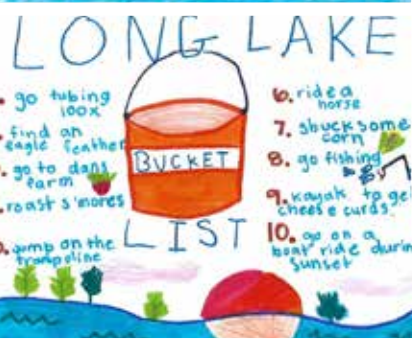 LONG LAKE
BUCKET
LIST
go tubing
100x
find an
eagle feather
go to dans
farm
roast s'mores
jump on the
trampoline
6. ride a
horse
7. shuck some
corn
8. go fishing
9. kayak to ge
cheese curds.
10. go on a
boat ride durin
sunset